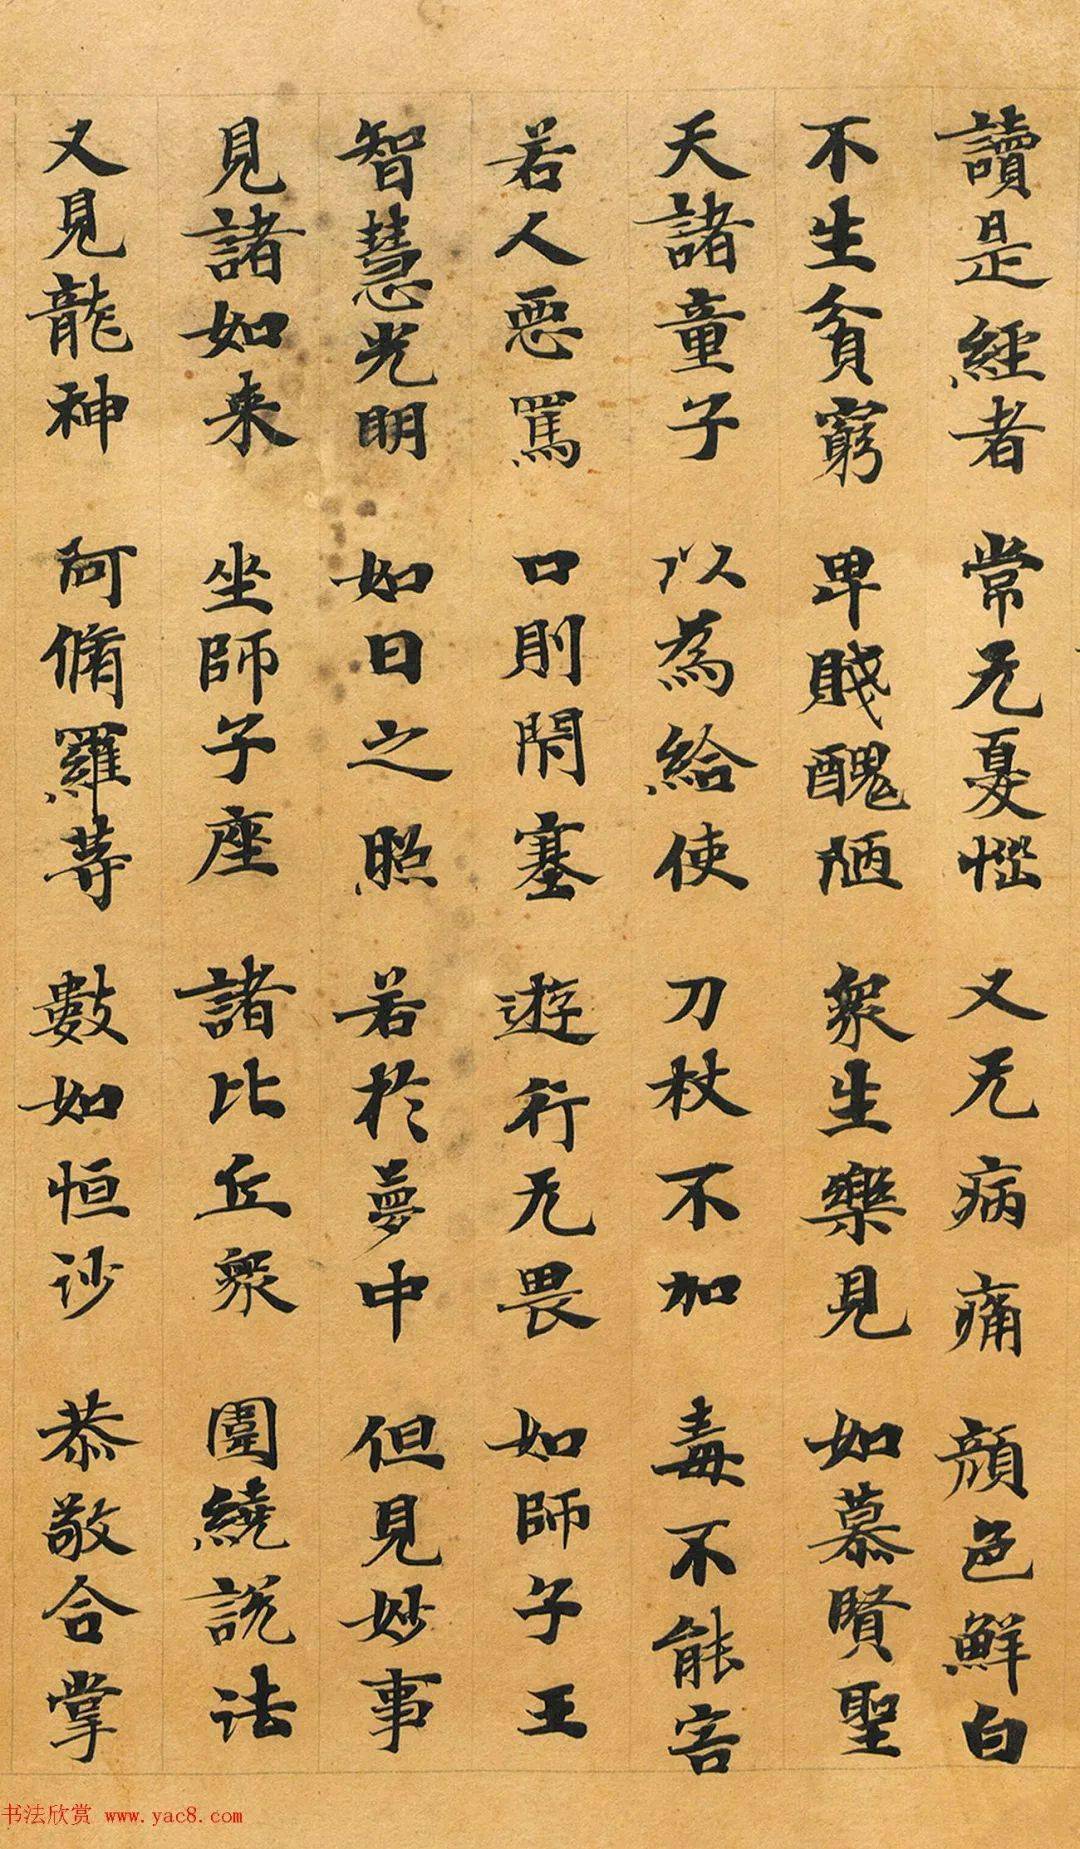 讀是經者 常无憂惱 又无病痛 顔色鮮白
不生貧窮 卑賤醜陋 衆生樂見 如慕賢聖
天諸童子 以為給使 刀杖不加 毒不能害
若人惡罵 口則閇塞 遊行无畏 如師子王
智慧光明 如日之照 若於夢中 但見妙事
見諸如来 坐師子座 諸比丘衆 圍繞説法
又見龍神 阿脩羅等 數如恒沙 恭敬合掌
书法欣赏 www.yac8.com